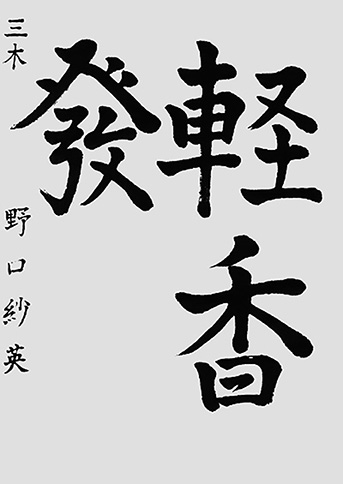 軽香
發
三木 野口紗英